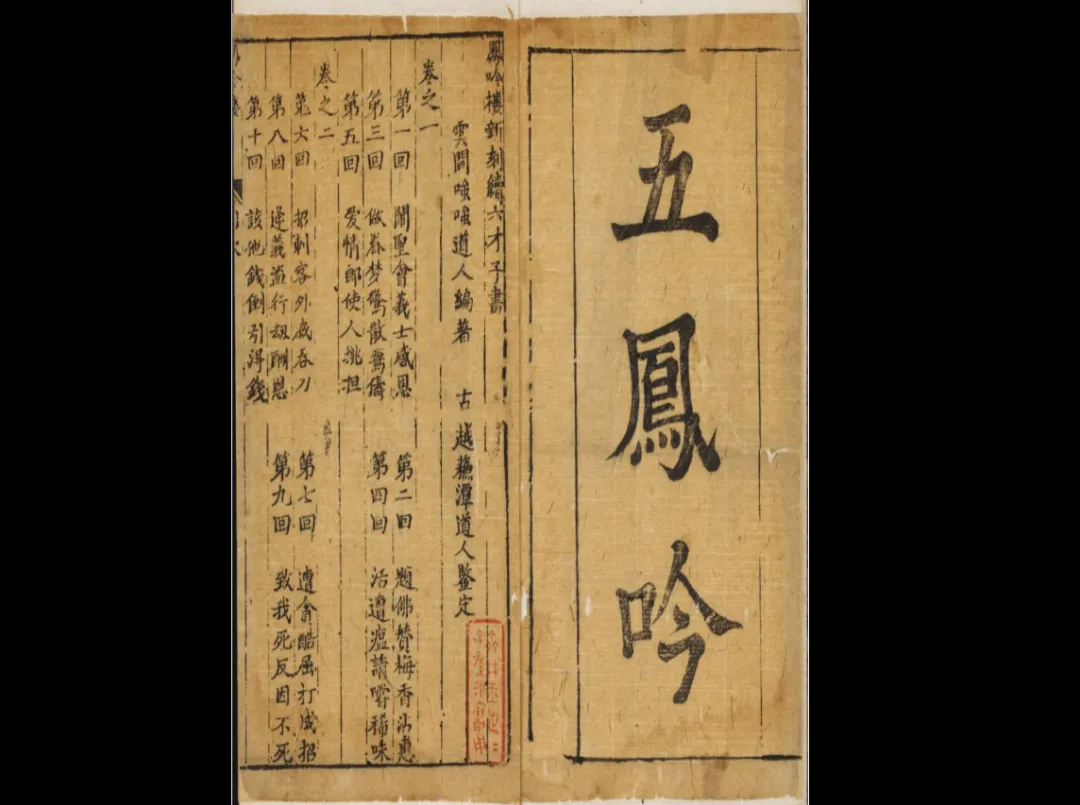 五鳳吟
鳳吟樓新刻續六才子書
雲間嗤嗤道人編著 古越蘓潭道人鑒定
卷之一
第一回 鬧聖會義士感恩 第二回 題佛贊梅香沾惠
第三回 做春梦驚散鴛儔 第四回 活遭瘟請嚐稀味
第五回 愛情郎使人挑担
卷之二
第六回 招刺客外戚吞刀 第七回 遭貪酷屈打成招
第八回 逢義盗行刼酬恩 第九回 致我死反因不死
第十回 該他錢倒引得錢